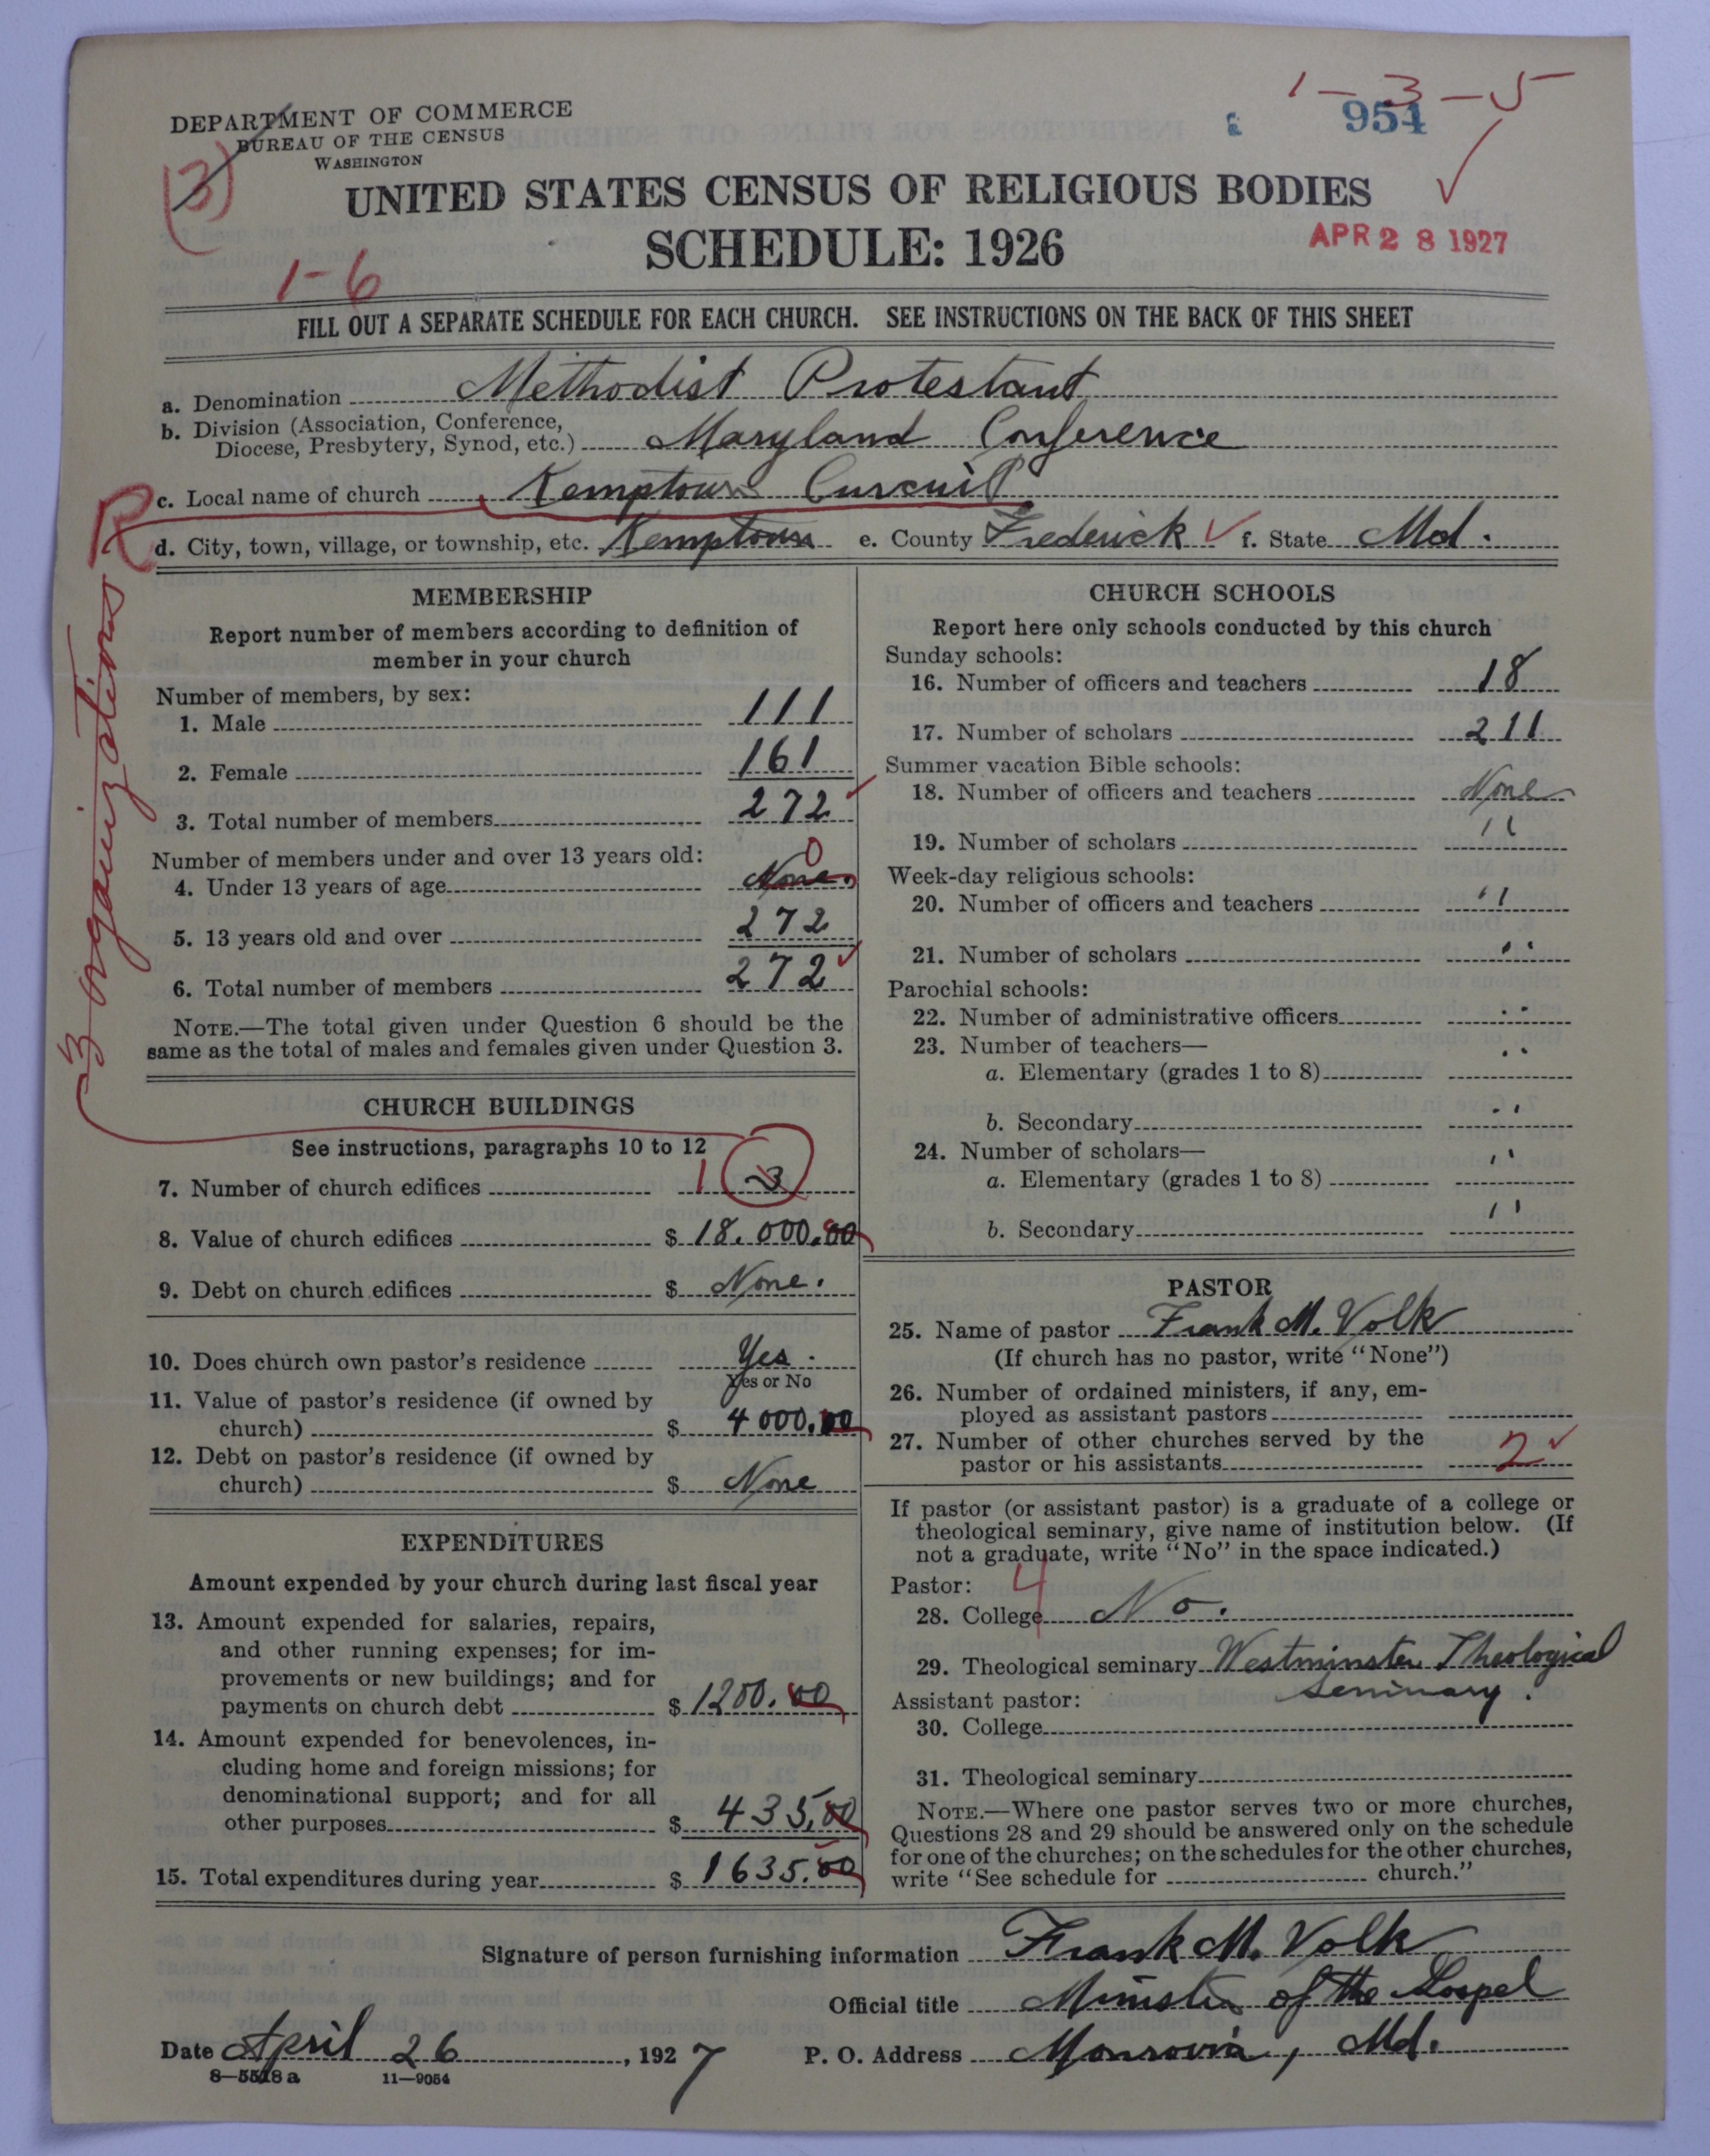 1 – 3 – 5
954
DEPARTMENT OF COMMERCE
BUREAU OF THE CENSUS
WASHINGTON
(3)
UNITED STATES CENSUS OF RELIGIOUS BODIES
SCHEDULE: 1926
APR 28 1927
1-6
FILL OUT A SEPARATE SCHEDULE FOR EACH CHURCH. SEE INSTRUCTIONS ON THE BACK OF THIS SHEET
a. Denomination Methodist Protestant
b. Division (Association, Conference,
Diocese, Presbytery, Synod, etc.) Maryland Conference
R
c. Local name of church Kemptown Curcuit
d. City, town, village, or township, etc. Kemptown e. County Frederick f. State Md.
3 organizations
MEMBERSHIP
Report number of members according to definition of
member in your church
Number of members, by sex:
1. Male 111
2. Female 161
3. Total number of members 272
Number of members under and over 13 years old:
0
4. Under 13 years of age None.
5. 13 years old and over 272
6. Total number of members 272
NOTE.—The total given under Question 6 should be the
same as the total of males and females given under Question 3.
CHURCH BUILDINGS
See instructions, paragraphs 10 to 12
7. Number of church edifices 1 3
8. Value of church edifices $ 18.000.00
9. Debt on church edifices $ None.
10. Does church own pastor's residence Yes.
Yes or No
11. Value of pastor's residence (if owned by
church) $ 4000.00
12. Debt on pastor's residence (if owned by
church) $ None
EXPENDITURES
Amount expended by your church during last fiscal year
13. Amount expended for salaries, repairs,
and other running expenses; for im-
provements or new buildings; and for
payments on church debt $ 1200.00
14. Amount expended for benevolences, in-
cluding home and foreign missions; for
denominational support; and for all
other purposes $ 435.00
15. Total expenditures during year $ 1635.00
CHURCH SCHOOLS
Report here only schools conducted by this church
Sunday schools:
16. Number of officers and teachers 18
17. Number of scholars 211
Summer vacation Bible schools:
18. Number of officers and teachers None
19. Number of scholars "
Week-day religious schools:
20. Number of officers and teachers "
21. Number of scholars "
Parochial schools:
22. Number of administrative officers "
23. Number of teachers—
a. Elementary (grades 1 to 8) "
b. Secondary "
24. Number of scholars—
a. Elementary (grades 1 to 8) "
b. Secondary "
PASTOR
25. Name of pastor Frank M. Volk
(If church has no pastor, write "None")
26. Number of ordained ministers, if any, em-
ployed as assistant pastors
27. Number of other churches served by the
pastor or his assistants 2
If pastor (or assistant pastor) is a graduate of a college or
theological seminary, give name of institution below. (If
not a graduate, write "No" in the space indicated.)
Pastor: 4
28. College No.
29. Theological seminary Westminster Theological
Seminary.
Assistant pastor:
30. College
31. Theological seminary
NOTE.—Where one pastor serves two or more churches,
Questions 28 and 29 should be answered only on the schedule
for one of the churches; on the schedules for the other churches,
write "See schedule for church."
Signature of person furnishing information Frank M. Volk
Official title Minister of the Gospel
Date April 26, 1927 P. O. Address Monrovia, Md.
8—5518a 11—9054